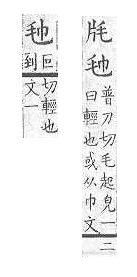 普刀切毛起皃一
曰輕也或从巾文二
叵切輕也
到文一